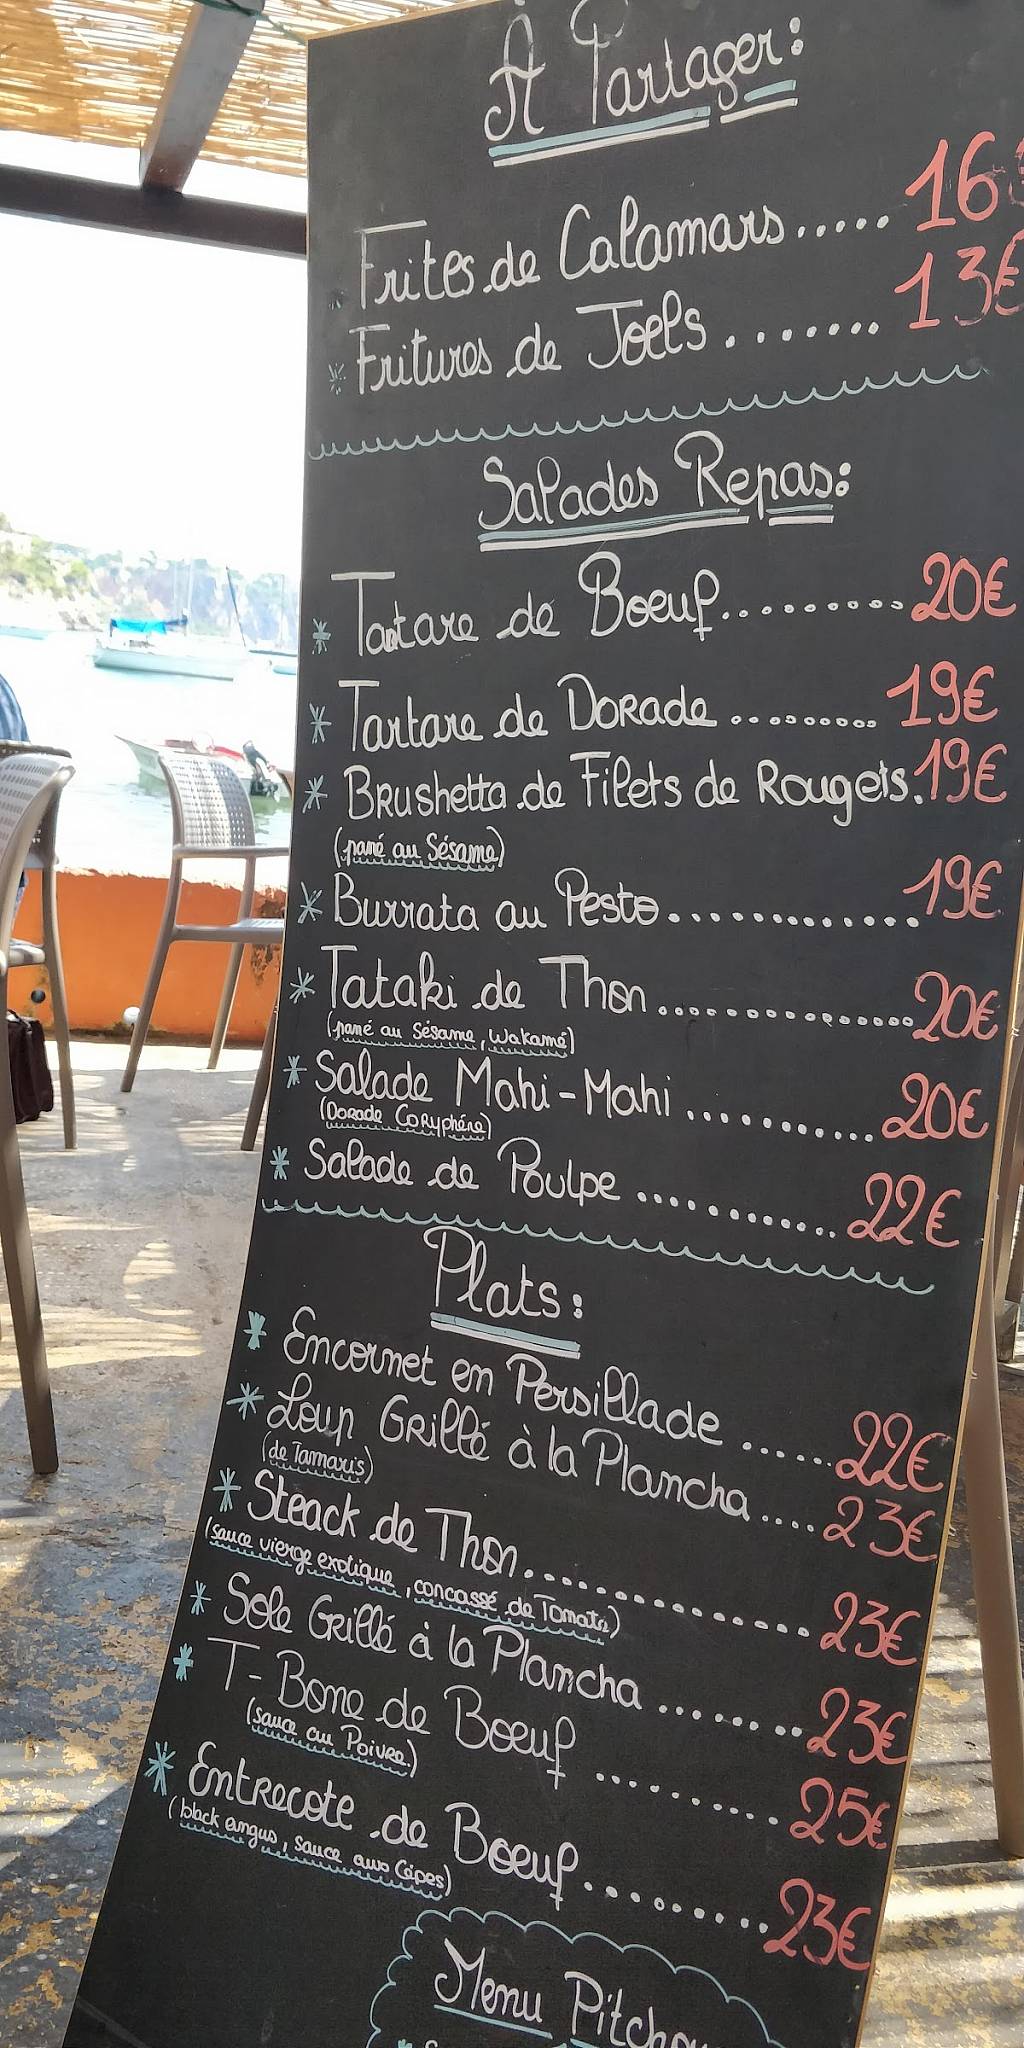 À Partager:
Frites de Calamars..... 16
* Fritures de Joels ....... 13€
Salades Repas:
* Tartare de Boeuf.......... 20€
* Tartare de Dorade ......... 19€
* Brushetta de Filets de Rougets. 19€
(pané au Sésame)
* Burrata au Pesto............. 19€
* Tataki de Thon ............... 20€
(pané au Sésame, Wakamé)
* Salade Mahi-Mahi .......... 20€
(Dorade Coryphène)
* Salade de Poulpe .......... 22€
Plats:
* Encornet en Persillade ...... 22€
* Loup Grillé à la Plancha .... 23€
(de Tamaris)
* Steack de Thon.................. 23€
(sauce vierge exotique, concassé de Tomate)
* Sole Grillé à la Plancha ........ 23€
* T-Bone de Boeuf .......... 25€
(sauce au Poivre)
* Entrecote de Boeuf.......... 23€
(black angus, sauce aux Cèpes)
Menu Pitchou